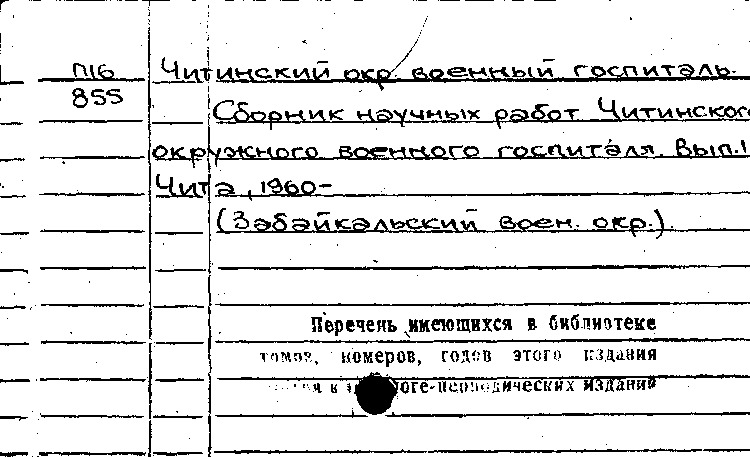 П16 Читинский окр. военный госпиталь.
855
Сборник научных работ Читинского
окружного военного госпиталя. Вып.1
Чита, 1960-
(Забайкальский воен. окр.).
Перечень имеющихся в библиотеке
томов, номеров, годов этого издания
в каталоге периодических изданий